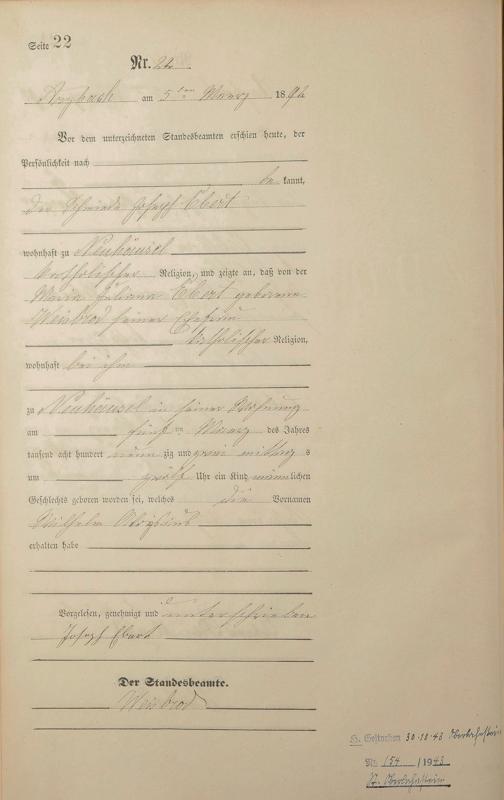 Seite 22
Nr. 22
Arzbach am 5ten Maerz 1892
Vor dem unterzeichneten Standesbeamten erschien heute, der
Persönlichkeit nach
be kannt,
der Schmied Joseph Ebert
wohnhaft zu Neuhäusel
katholischer Religion, und zeigte an, daß von der
Maria Juliana Ebert geborene
Weisbrod seiner Ehefrau
katholischer Religion,
wohnhaft bei ihm
zu Neuhäusel in seiner Wohnung
am fünf ten Maerz des Jahres
tausend acht hundert neun zig und zwei mittag s
um zwölf Uhr ein Kind männlichen
Geschlechts geboren worden sei, welches die Vornamen
Wilhelm Aloysius
erhalten habe
Vorgelesen, genehmigt und unterschrieben
Joseph Ebert
Der Standesbeamte.
Weisbrod
Gestorben 30.10.43 Oberlahnstein
Nr. 154 / 1943
St. Oberlahnstein